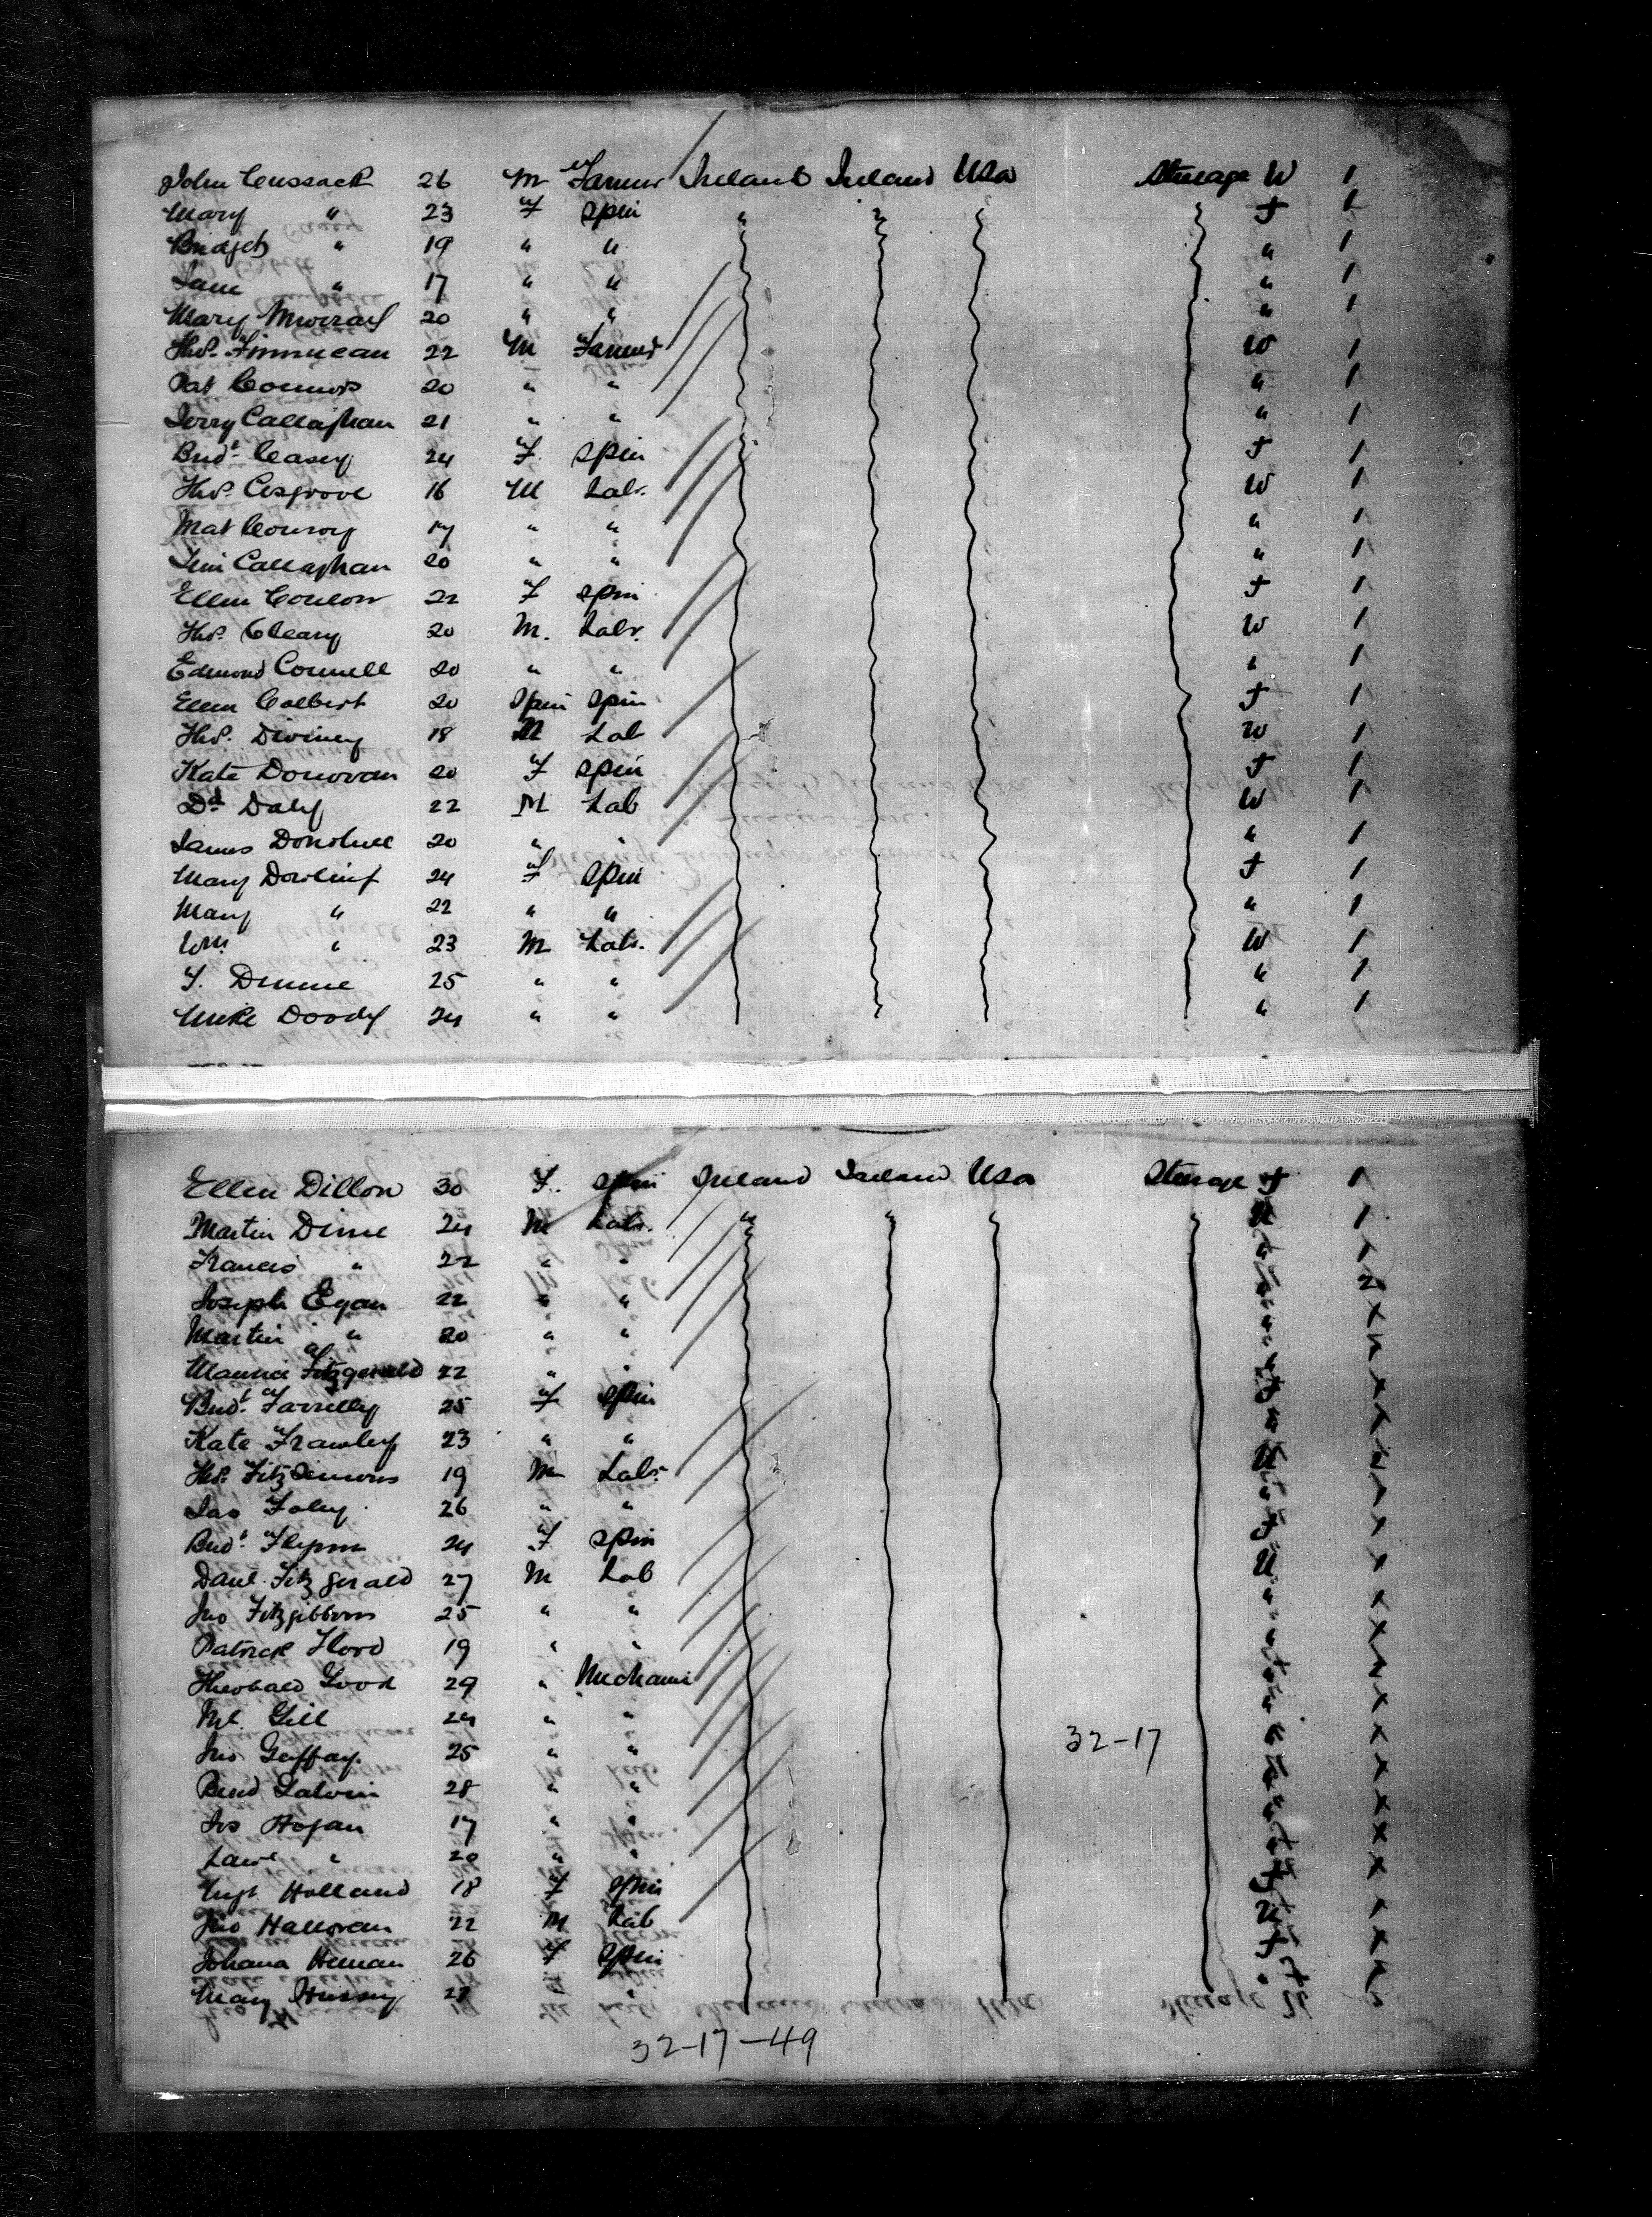 John Cussack 26 M Farmer Ireland Ireland USA Steerage W 1
Mary " 23 F Spin " " " " F 1
Bridget " 19 " " " 1
Jane " 17 " " " 1
Mary Murray 20 " " " 1
Thos. Finnucan 22 M Farmer W 1
Pat Connors 20 " " " 1
Jerry Callaghan 21 " " " 1
Brid.t Casey 24 F. Spin F 1
Thos. Cosgrove 16 M Labr. W 1
Mat Conroy 17 " " " 1
Jim Callaghan 20 " " " 1
Ellen Conlon 22 F Spin F 1
Thos. Cleary 20 M. Labr. W 1
Edmond Connell 20 " " " 1
Ellen Colbert 20 Spin Spin F 1
Thos. Diviney 18 M Lab W 1
Kate Donovan 20 F Spin F 1
Dd Daly 22 M Lab W 1
James Donohue 20 " " " 1
Mary Dowling 24 F Spin F 1
Mary " 22 " " " 1
Wm. " 23 M Labr. W 1
T. Dunne 25 " " " 1
Mike Doody 24 " " " 1
Ellen Dillon 30 F. Spin Ireland Ireland USA Steerage F 1
Martin Dime 24 M Labr. " " " "
Francis " 22 " "
Joseph Egan 22 " "
Martin " 20 " "
Maurice Fitzgerald 22 " "
Brid.t Farrelly 25 F Spin
Kate Frawley 23 " "
Thos. Fitzsimons 19 M Labr.
Jas Foley 26 " "
Brid.t Flynn 24 F Spin
Danl. Fitzgerald 27 M Lab
Jno Fitzgibbons 25 " "
Patrick Flood 19 " "
Theobald Good 29 " Mechanic
Ml. Gill 24 " "
Jno Gaffay 25 " " 32-17
Bend Galvin 28 " "
Jos Hogan 17 " "
Lawe " 20 " "
Mgt Holland 18 F Spin
Jno Halloran 22 M Lab
Johana Heenan 26 F Spin
Mary Hussey " "
32-17-49